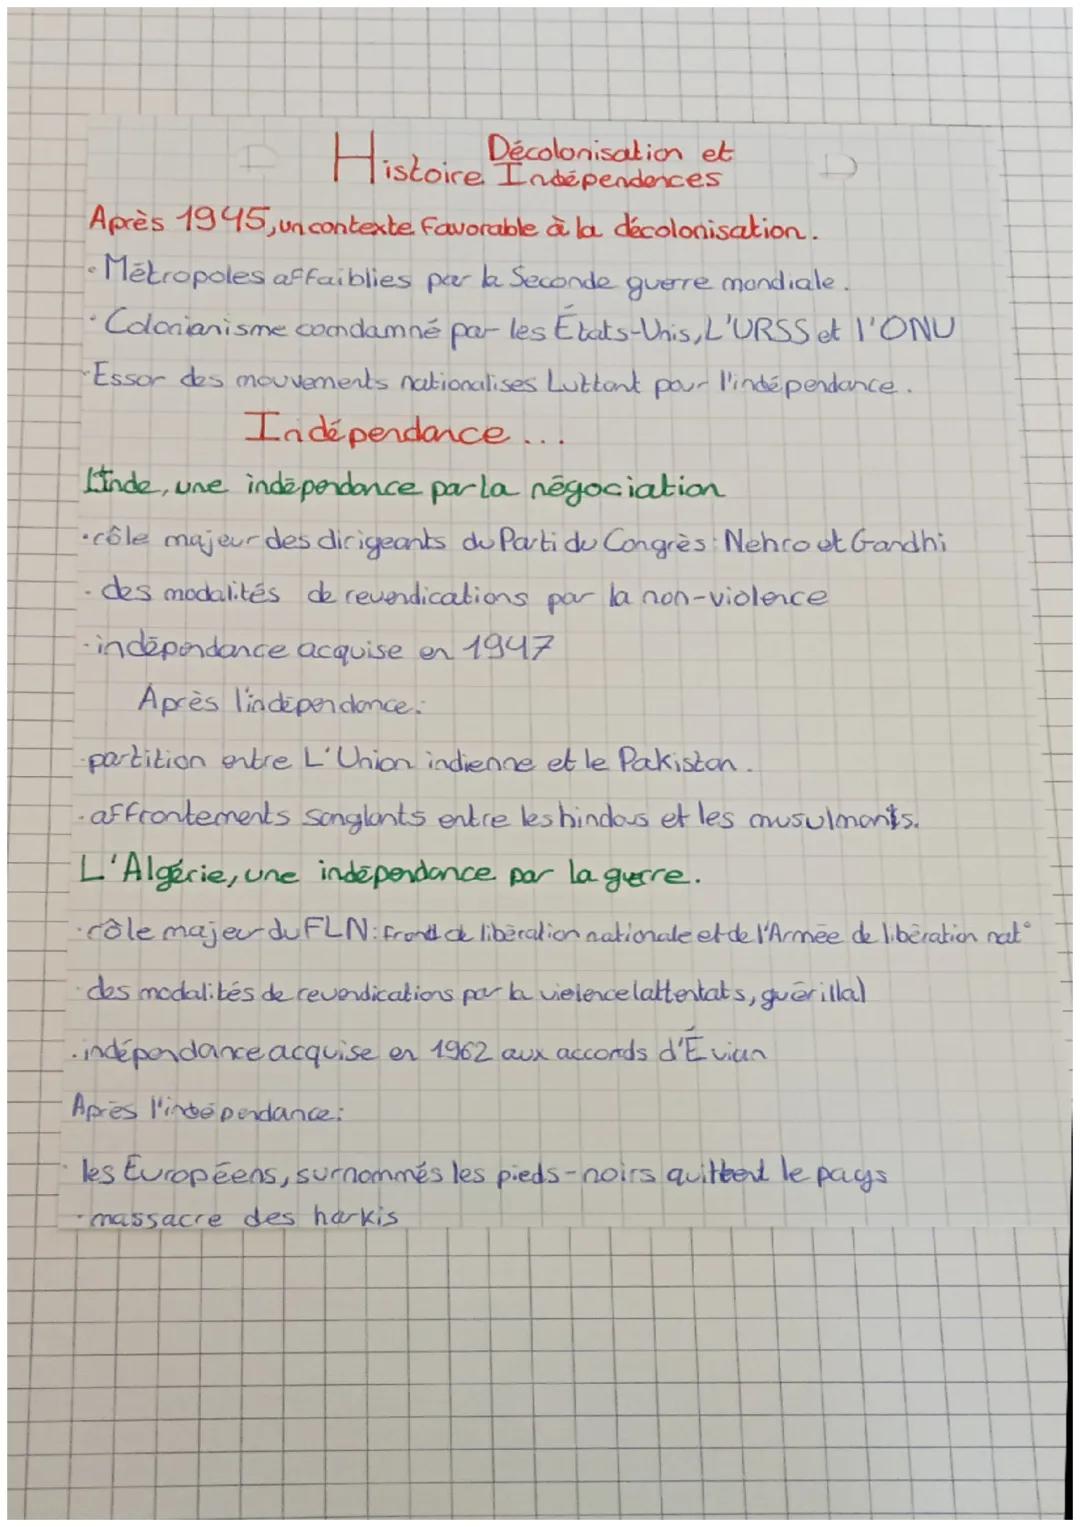 Histoire Décolonisation et
Indépendances
Après 1945, un contexte favorable à la décolonisation.
· Métropoles affaiblies par la Seconde guerre mondiale.
· Colonianisme comdamné par les États-Unis, L'URSS et l'ONU
· Essor des mouvements nationalises Luttant pour l'indépendance.
Indépendance ...
L'Inde, une indépendance par la négociation
· rôle majeur des dirigeants du Parti du Congrès : Nehro et Gandhi
· des modalités de revendications par la non-violence
· indépendance acquise en 1947
Après l'indépendance:
· partition entre L'Union indienne et le Pakistan.
· affrontements sanglants entre les hindous et les musulmants.
L'Algérie, une indépendance par la guerre.
· rôle majeur du FLN: front de libération nationale et de l'Armée de libération nat°
· des modalités de revendications par la violence (attentats, guérilla)
· indépendance acquise en 1962 aux accords d'Évian
Après l'indépendance:
· les Européens, surnommés les pieds-noirs quittent le pays
· massacre des harkis